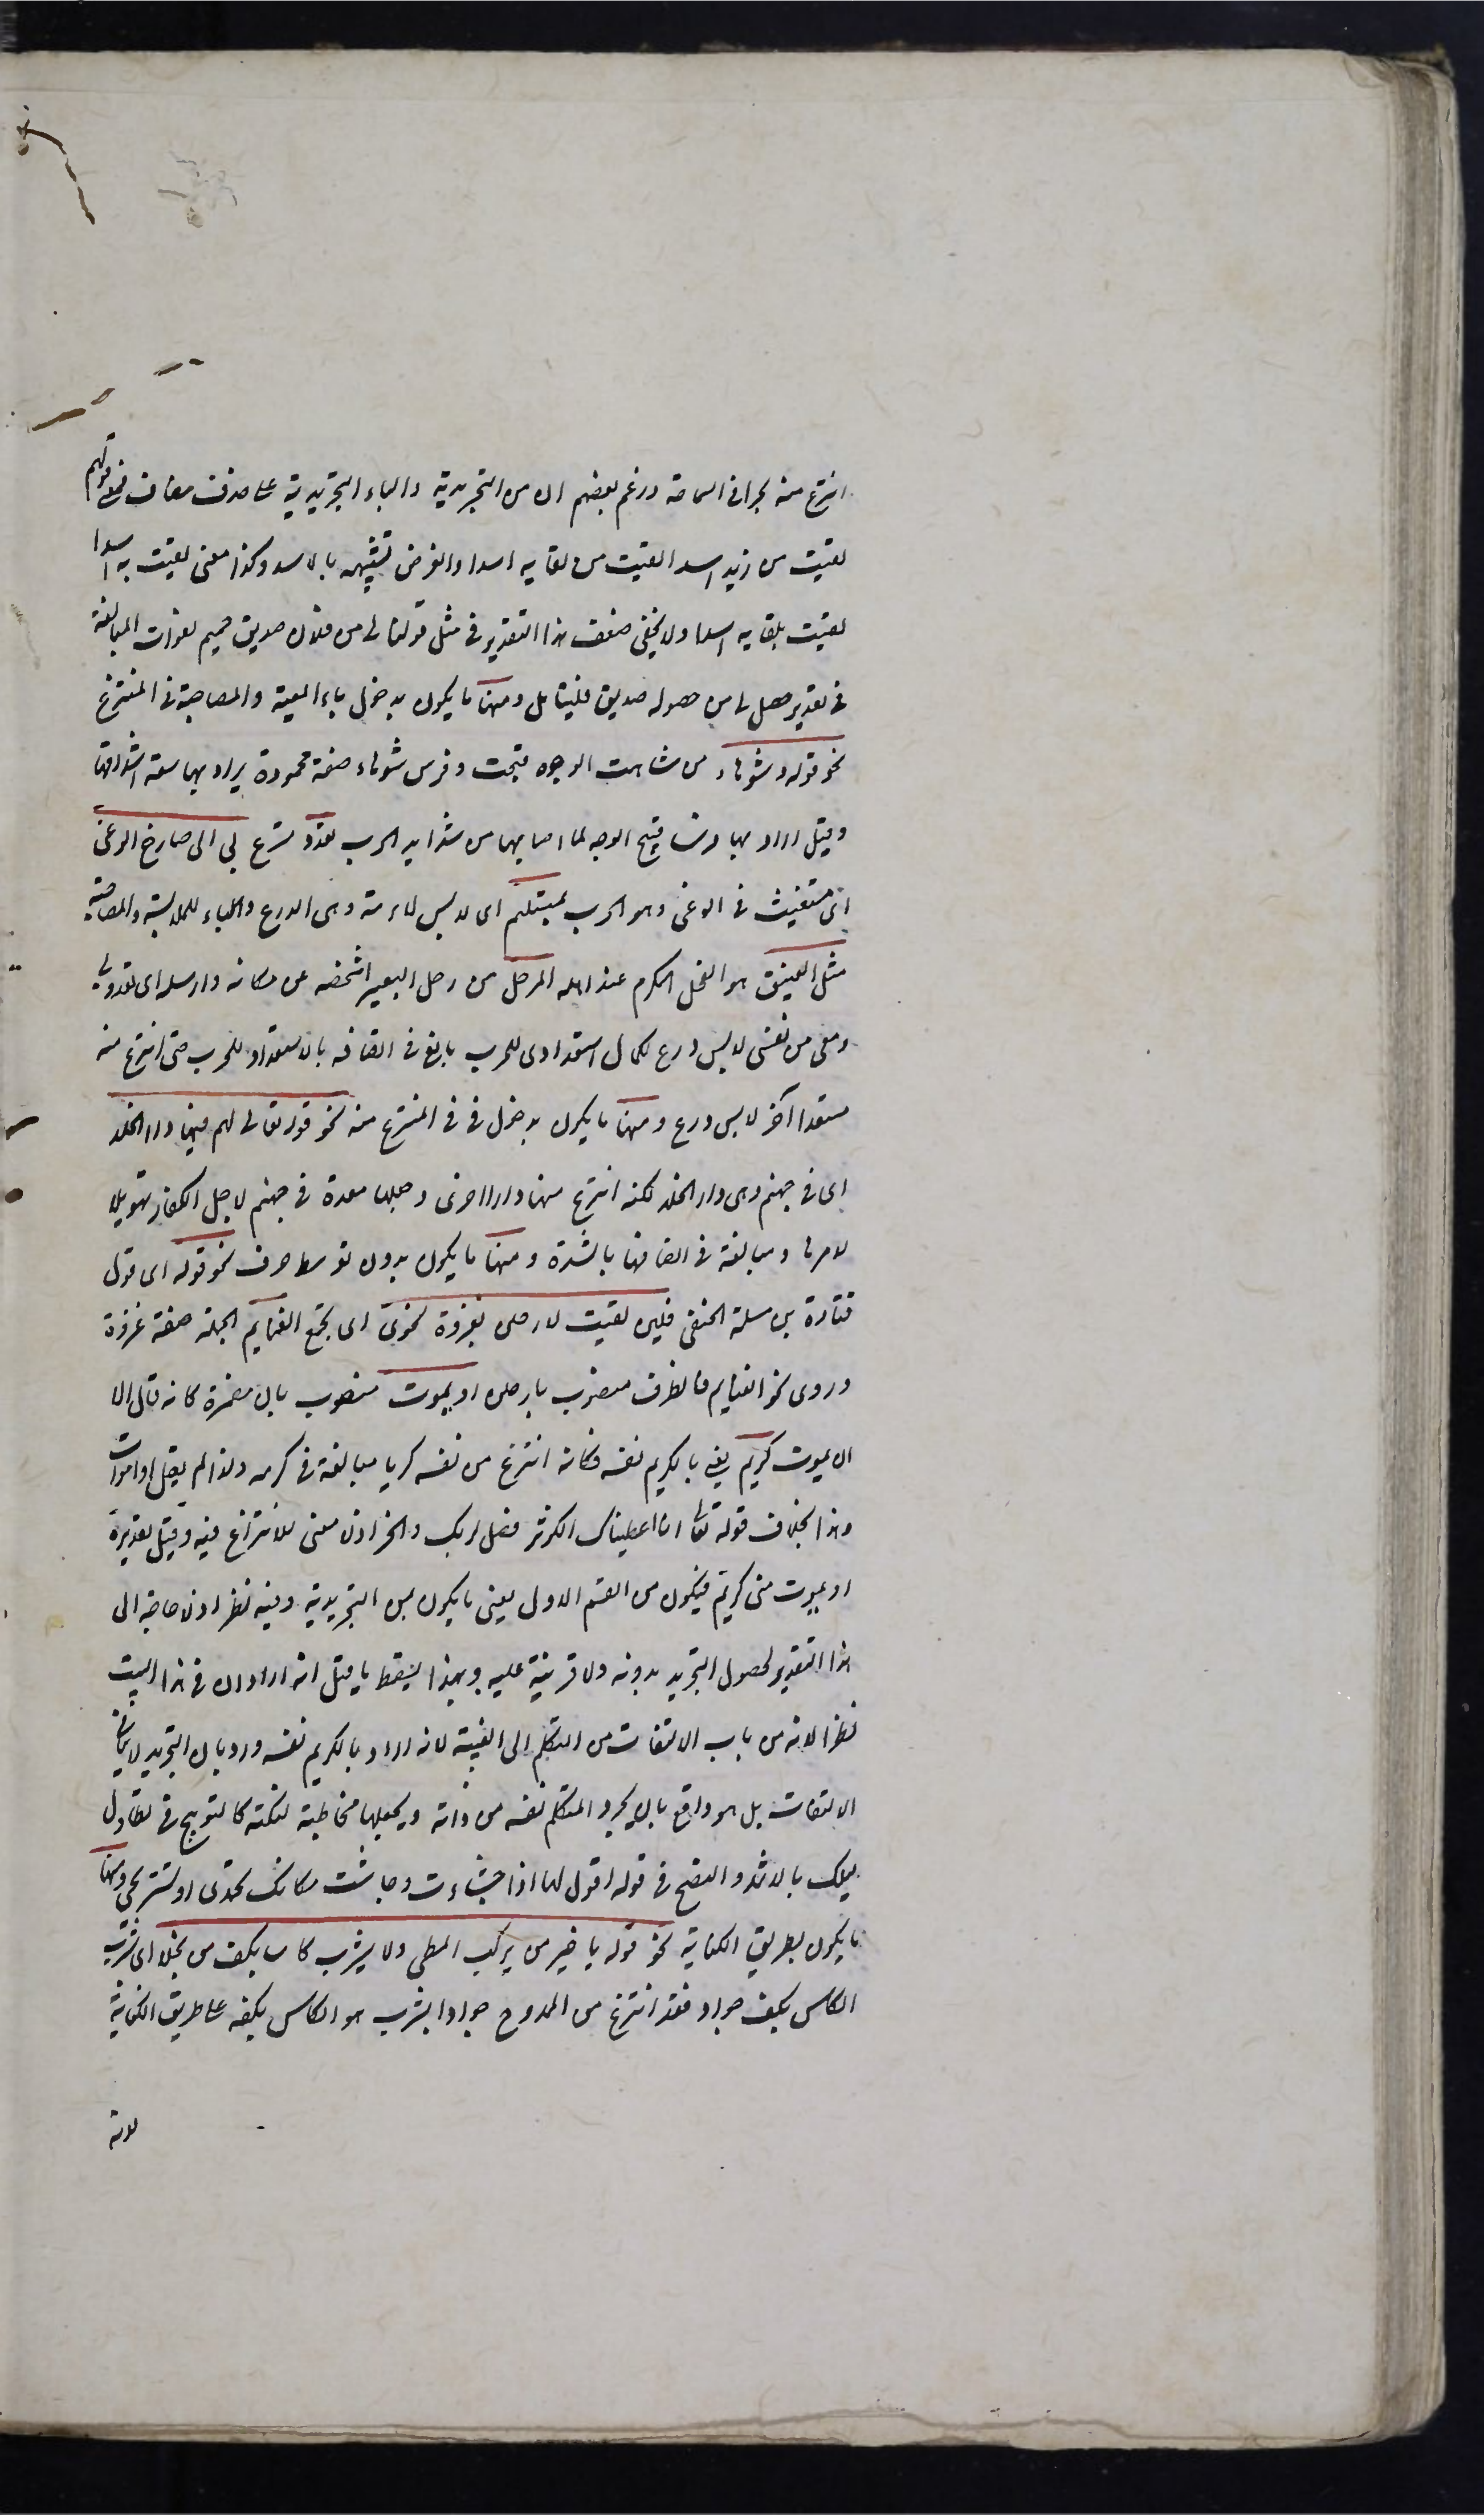 انتزع منه بحرا فى السماحة وزعم بعضهم ان من التجريدية والباء التجريدية على حذف مضاف فمعنى قولهم
لقيت من زيد اسدا لقيت من لقايه اسدا والغرض تشبيهه بالاسد وكذا معنى لقيت به اسدا
لقيت بلقايه اسدا ولا يخفى ضعف هذا التقدير فى مثل قولنا لى من فلان صديق حميم لفوات المبالغة
فى تقدير حصل لى من حصوله صديق فليتامل ومنها ما يكون بدخول باء المعية والمصاحبة فى المنتزع
نحو قوله وشوهاء من شاهت الوجوه قبحت وفرس شوهاء صفة محمودة يراد بها سعة اشداقها
وقيل اراد بها فرسا قبيح الوجه لما اصابها من شدايد الحرب تعدو تسرع بى الى صارخ الوغى
اى مستغيث فى الوغى وهو الحرب بمستلئم اى لابس لامة وهى الدرع والباء للملابسة والمصاحبة
مثل الفنيق هو الفحل المكرم عند اهله المرحل من رحل البعير اشخصه عن مكانه وارسله اى تعدو بى
ومعى من نفسى لابس درع لكمال استعدادى للحرب بالغ فى اتصافه بالاستعداد للحرب حتى انتزع منه
مستعدا آخر لابس درع ومنها ما يكون بدخول فى فى المنتزع منه نحو قوله تعالى لهم فيها دار الخلد
اى فى جهنم وهى دار الخلد لكنه انتزع منها دارا اخرى وجعلها معدة فى جهنم لاجل الكفار تهويلا
لامرها ومبالغة فى اتصافها بالشدة ومنها ما يكون بدون توسط حرف نحو قوله اى قول
قتادة بن مسلمة الحنفى فلئن لقيت لارحلن بغزوة تحوى اى تجمع الغنايم الجملة صفة غزوة
وروى نحو الغنايم فالظرف منصوب بارحلن او يموت منصوب بان مضمرة كانه قال الا
ان يموت كريم يعنى بالكريم نفسه فكانه انتزع من نفسه كريما مبالغة فى كرمه ولذا لم يقل او اموت
وهذا بخلاف قوله تعالى انا اعطيناك الكوثر فصل لربك وانحر اذ لا معنى للانتزاع فيه وقيل تقديره
او يموت منى كريم فيكون من القسم الاول يعنى ما يكون بمن التجريدية وفيه نظر اذ لا حاجة الى
هذا التقدير لحصول التجريد بدونه ولا قرينة عليه وبهذا يسقط ما قيل انه اراد ان فى هذا البيت
نظرا لانه من باب الالتفات من التكلم الى الغيبة لانه اراد بالكريم نفسه ورد بان التجريد لا ينافى
الالتفات بل هو واقع بان يجرد المتكلم نفسه من ذاته ويجعلها مخاطبة لنكتة كالتوبيخ فى تطاول
ليلك بالاثمد والنصح فى قوله اقول لها اذا جشاءت وجاشت مكانك تحمدى او تستريحى ومنها
ما يكون بطريق الكناية نحو قوله يا خير من يركب المطى ولا يشرب كاسا بكف من بخلا اى يشرب
الكاس بكف جواد فقد انتزع من الممدوح جوادا يشرب هو الكاس بكفه على طريق الكناية
لانه